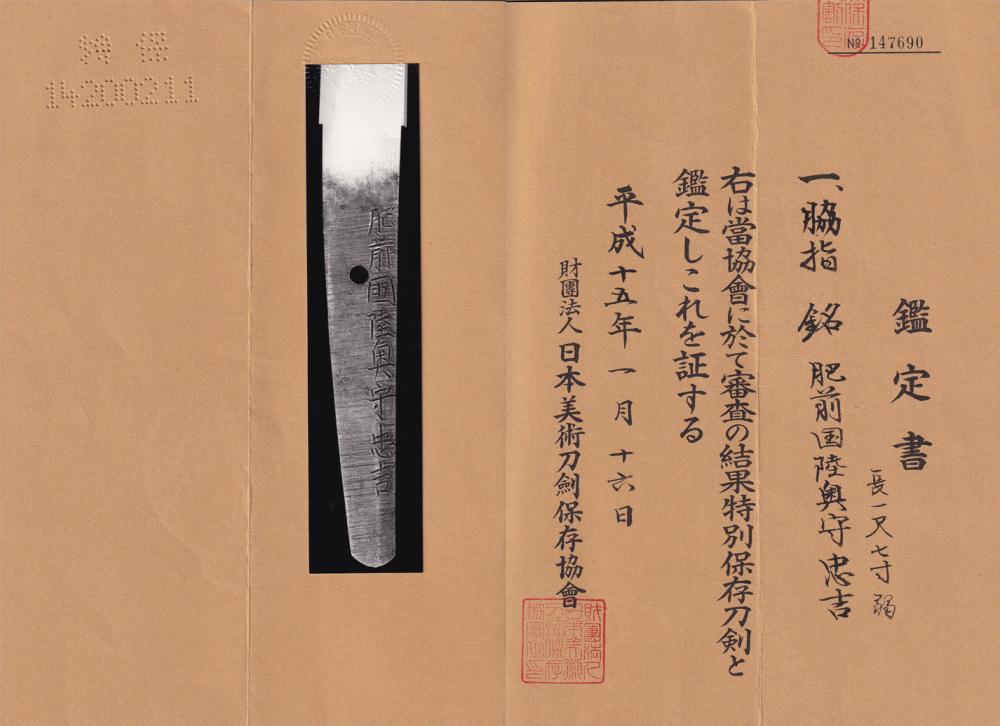 № 147690
鑑定書
一、脇指 銘 肥前国陸奥守忠吉
長一尺七寸弱
右は當協會に於て審査の結果特別保存刀剣と
鑑定しこれを証する
平成十五年一月十六日
財團法人 日本美術刀劍保存協會
肥前国陸奥守忠吉
14200211